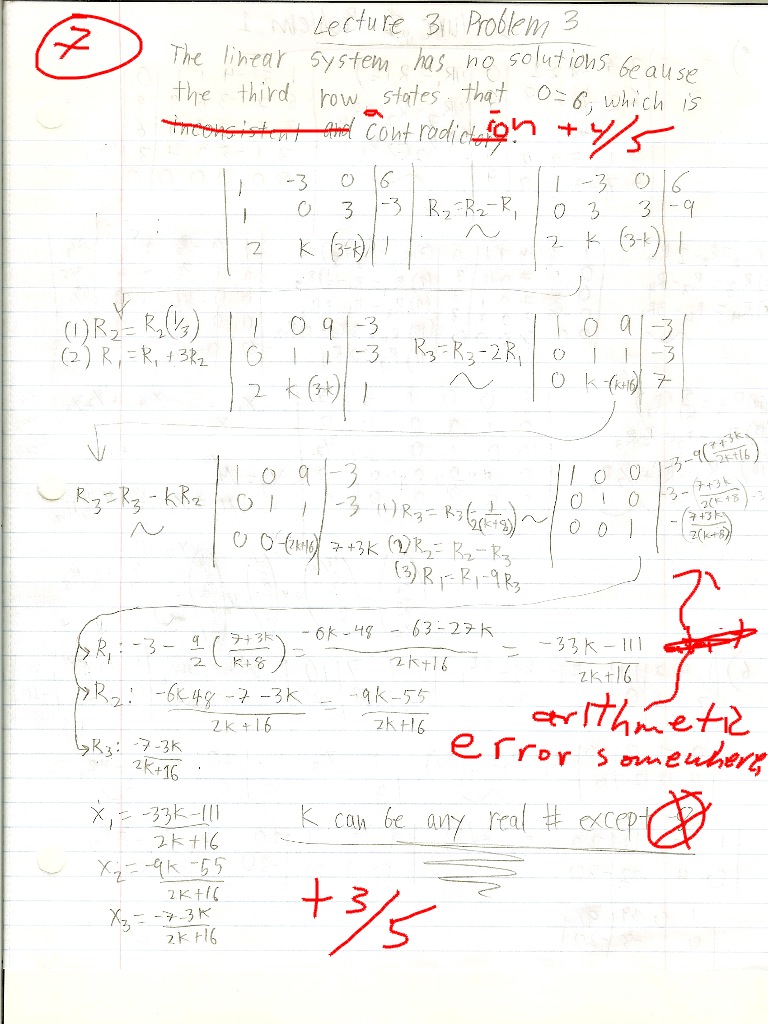 7
Lecture 3 Problem 3
The linear system has no solutions because
the third row states that 0=6, which is
inconsistent and a contradiction. +4/5
1 -3 0 | 6
1 0 3 | -3
2 k (3-k) | 1
R₂=R₂-R₁
~
1 -3 0 | 6
0 3 3 | -9
2 k (3-k) | 1
(1) R₂ = R₂(1/3)
(2) R₁ = R₁ + 3R₂
1 0 9 | -3
0 1 1 | -3
2 k (3-k) | 1
R₃=R₃-2R₁
~
1 0 9 | -3
0 1 1 | -3
0 k -(k+16) | 7
R₃=R₃-kR₂
~
1 0 9 | -3
0 1 1 | -3
0 0 -(2k+16) | 7+3k
(1) R₃=R₃(-1/2(k+8)) ~
(2) R₂=R₂-R₃
(3) R₁=R₁-9R₃
1 0 0 | -3-9(7+3k/2k+16)
0 1 0 | -3-(7+3k/2(k+8))
0 0 1 | -(7+3k/2(k+8))
R₁: -3 - 9/2 (7+3k/k+8) = -6k-48 - 63-27k/2k+16 = -33k-111/2k+16
R₂: -6k-48-7-3k/2k+16 = -9k-55/2k+16
R₃: -7-3k/2k+16
arithmetic
error somewhere
x₁ = -33k-111/2k+16
k can be any real # except -8
x₂ = -9k-55/2k+16
x₃ = -7-3k/2k+16
+3/5